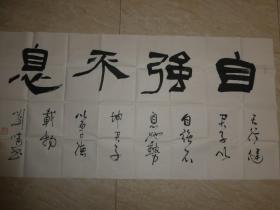 自强不息
天行健
君子以
自强不
息地势
坤君子
以厚德
载物